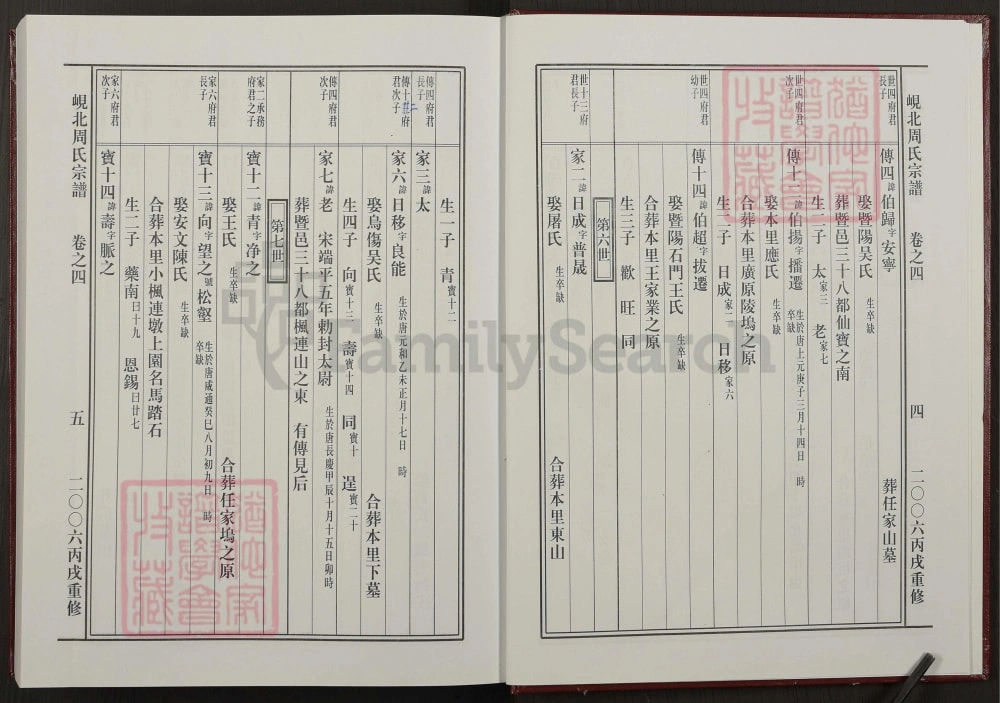 峴北周氏宗譜 卷之四 四 二〇〇六丙戌重修
世四府君長子
傳四諱伯歸字安寧 葬任家山墓
娶暨陽吳氏 生卒缺
葬暨邑三十八都仙寶之南
生二子 太家三 老家七
世四府君次子
傳十一諱伯揚字播遷 生於唐上元庚子三月十四日 時 卒缺
娶本里應氏 生卒缺
合葬本里廣原陵塢之原
生二子 日成家二 日移家六
世四府君幼子
傳十四諱伯超字拔遷
娶暨陽石門王氏 生卒缺
合葬本里王家業之原
生三子 歡 旺 同
第六世
世十三府君長子
家二諱日成字普晟
娶屠氏 生卒缺 合葬本里東山
生一子 青寶十二
傳四府君長子
家三諱太
傳十一府君次子
家六諱日移字良能 生於唐元和乙未正月十七日 時
娶烏傷吳氏 生卒缺 合葬本里下墓
生四子 向寶十三 壽寶十四 同寶十 逞寶二十
傳四府君次子
家七諱老 宋端平五年勅封太尉 生於唐長慶甲辰十月十五日卯時
葬暨邑三十八都楓連山之東 有傳見后
第七世
家二承務府君之子
寶十二諱青字净之
娶王氏 生卒缺 合葬任家塢之原
家六府君長子
寶十三諱向字望之號松壑 生於唐咸通癸巳八月初九日 時 卒缺
娶安文陳氏 生卒缺
合葬本里小楓連墩上園名馬踏石
生二子 藥南日十九 恩錫日廿七
家六府君次子
寶十四諱壽字脈之
峴北周氏宗譜 卷之四 五 二〇〇六丙戌重修
FamilySearch